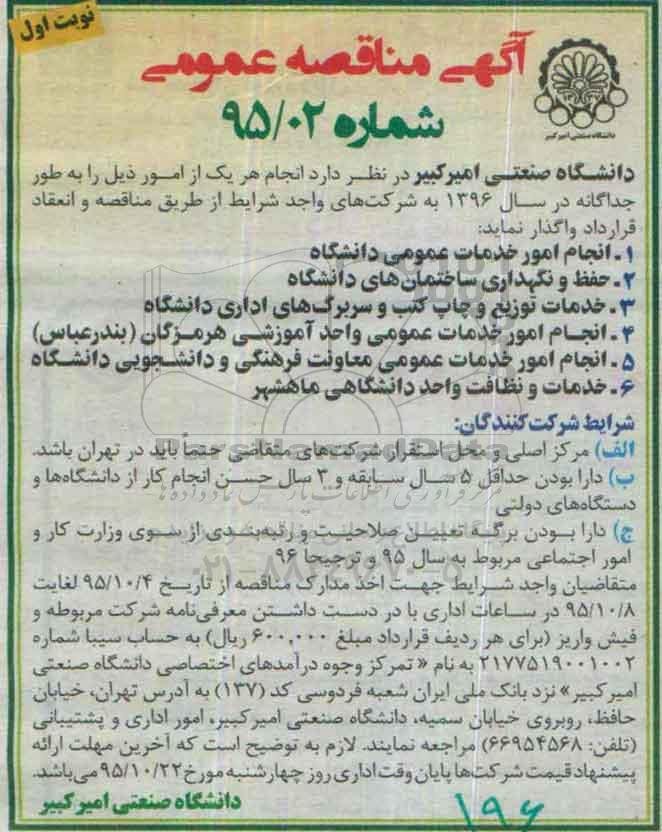 نوبت اول
آگهی مناقصه عمومی
شماره ۹۵/۰۲
دانشگاه صنعتی امیرکبیر
دانشگاه صنعتی امیرکبیر در نظر دارد انجام هر یک از امور ذیل را به طور
جداگانه در سال ۱۳۹۶ به شرکت‌های واجد شرایط از طریق مناقصه و انعقاد
قرارداد واگذار نماید:
۱ـ انجام امور خدمات عمومی دانشگاه
۲ـ حفظ و نگهداری ساختمان‌های دانشگاه
۳ـ خدمات توزیع و چاپ کتب و سربرگ‌های اداری دانشگاه
۴ـ انجام امور خدمات عمومی واحد آموزشی هرمزگان (بندرعباس)
۵ـ انجام امور خدمات عمومی معاونت فرهنگی و دانشجویی دانشگاه
۶ـ خدمات و نظافت واحد دانشگاهی ماهشهر
شرایط شرکت‌کنندگان:
الف) مرکز اصلی و محل استقرار شرکت‌های متقاضی حتماً باید در تهران باشد.
ب) دارا بودن حداقل ۵ سال سابقه و ۳ سال حسن انجام کار از دانشگاه‌ها و
دستگاه‌های دولتی
ج) دارا بودن برگه تعیین صلاحیت و رتبه‌بندی از سوی وزارت کار و
امور اجتماعی مربوط به سال ۹۵ و ترجیحا ۹۶
متقاضیان واجد شرایط جهت اخذ مدارک مناقصه از تاریخ ۹۵/۱۰/۴ لغایت
۹۵/۱۰/۸ در ساعات اداری با در دست داشتن معرفی‌نامه شرکت مربوطه و
فیش واریز (برای هر ردیف قرارداد مبلغ ۶۰۰,۰۰۰ ریال) به حساب سیبا شماره
۲۱۷۷۵۱۹۰۰۱۰۰۲ به نام «تمرکز وجوه درآمدهای اختصاصی دانشگاه صنعتی
امیرکبیر» نزد بانک ملی ایران شعبه فردوسی کد (۱۳۷) به آدرس تهران، خیابان
حافظ، روبروی خیابان سمیه، دانشگاه صنعتی امیرکبیر، امور اداری و پشتیبانی
(تلفن: ۶۶۹۵۴۵۶۸) مراجعه نمایند. لازم به توضیح است که آخرین مهلت ارائه
پیشنهاد قیمت شرکت‌ها پایان وقت اداری روز چهارشنبه مورخ ۹۵/۱۰/۲۲ می‌باشد.
دانشگاه صنعتی امیرکبیر
۱۹۶
ParsNamadData